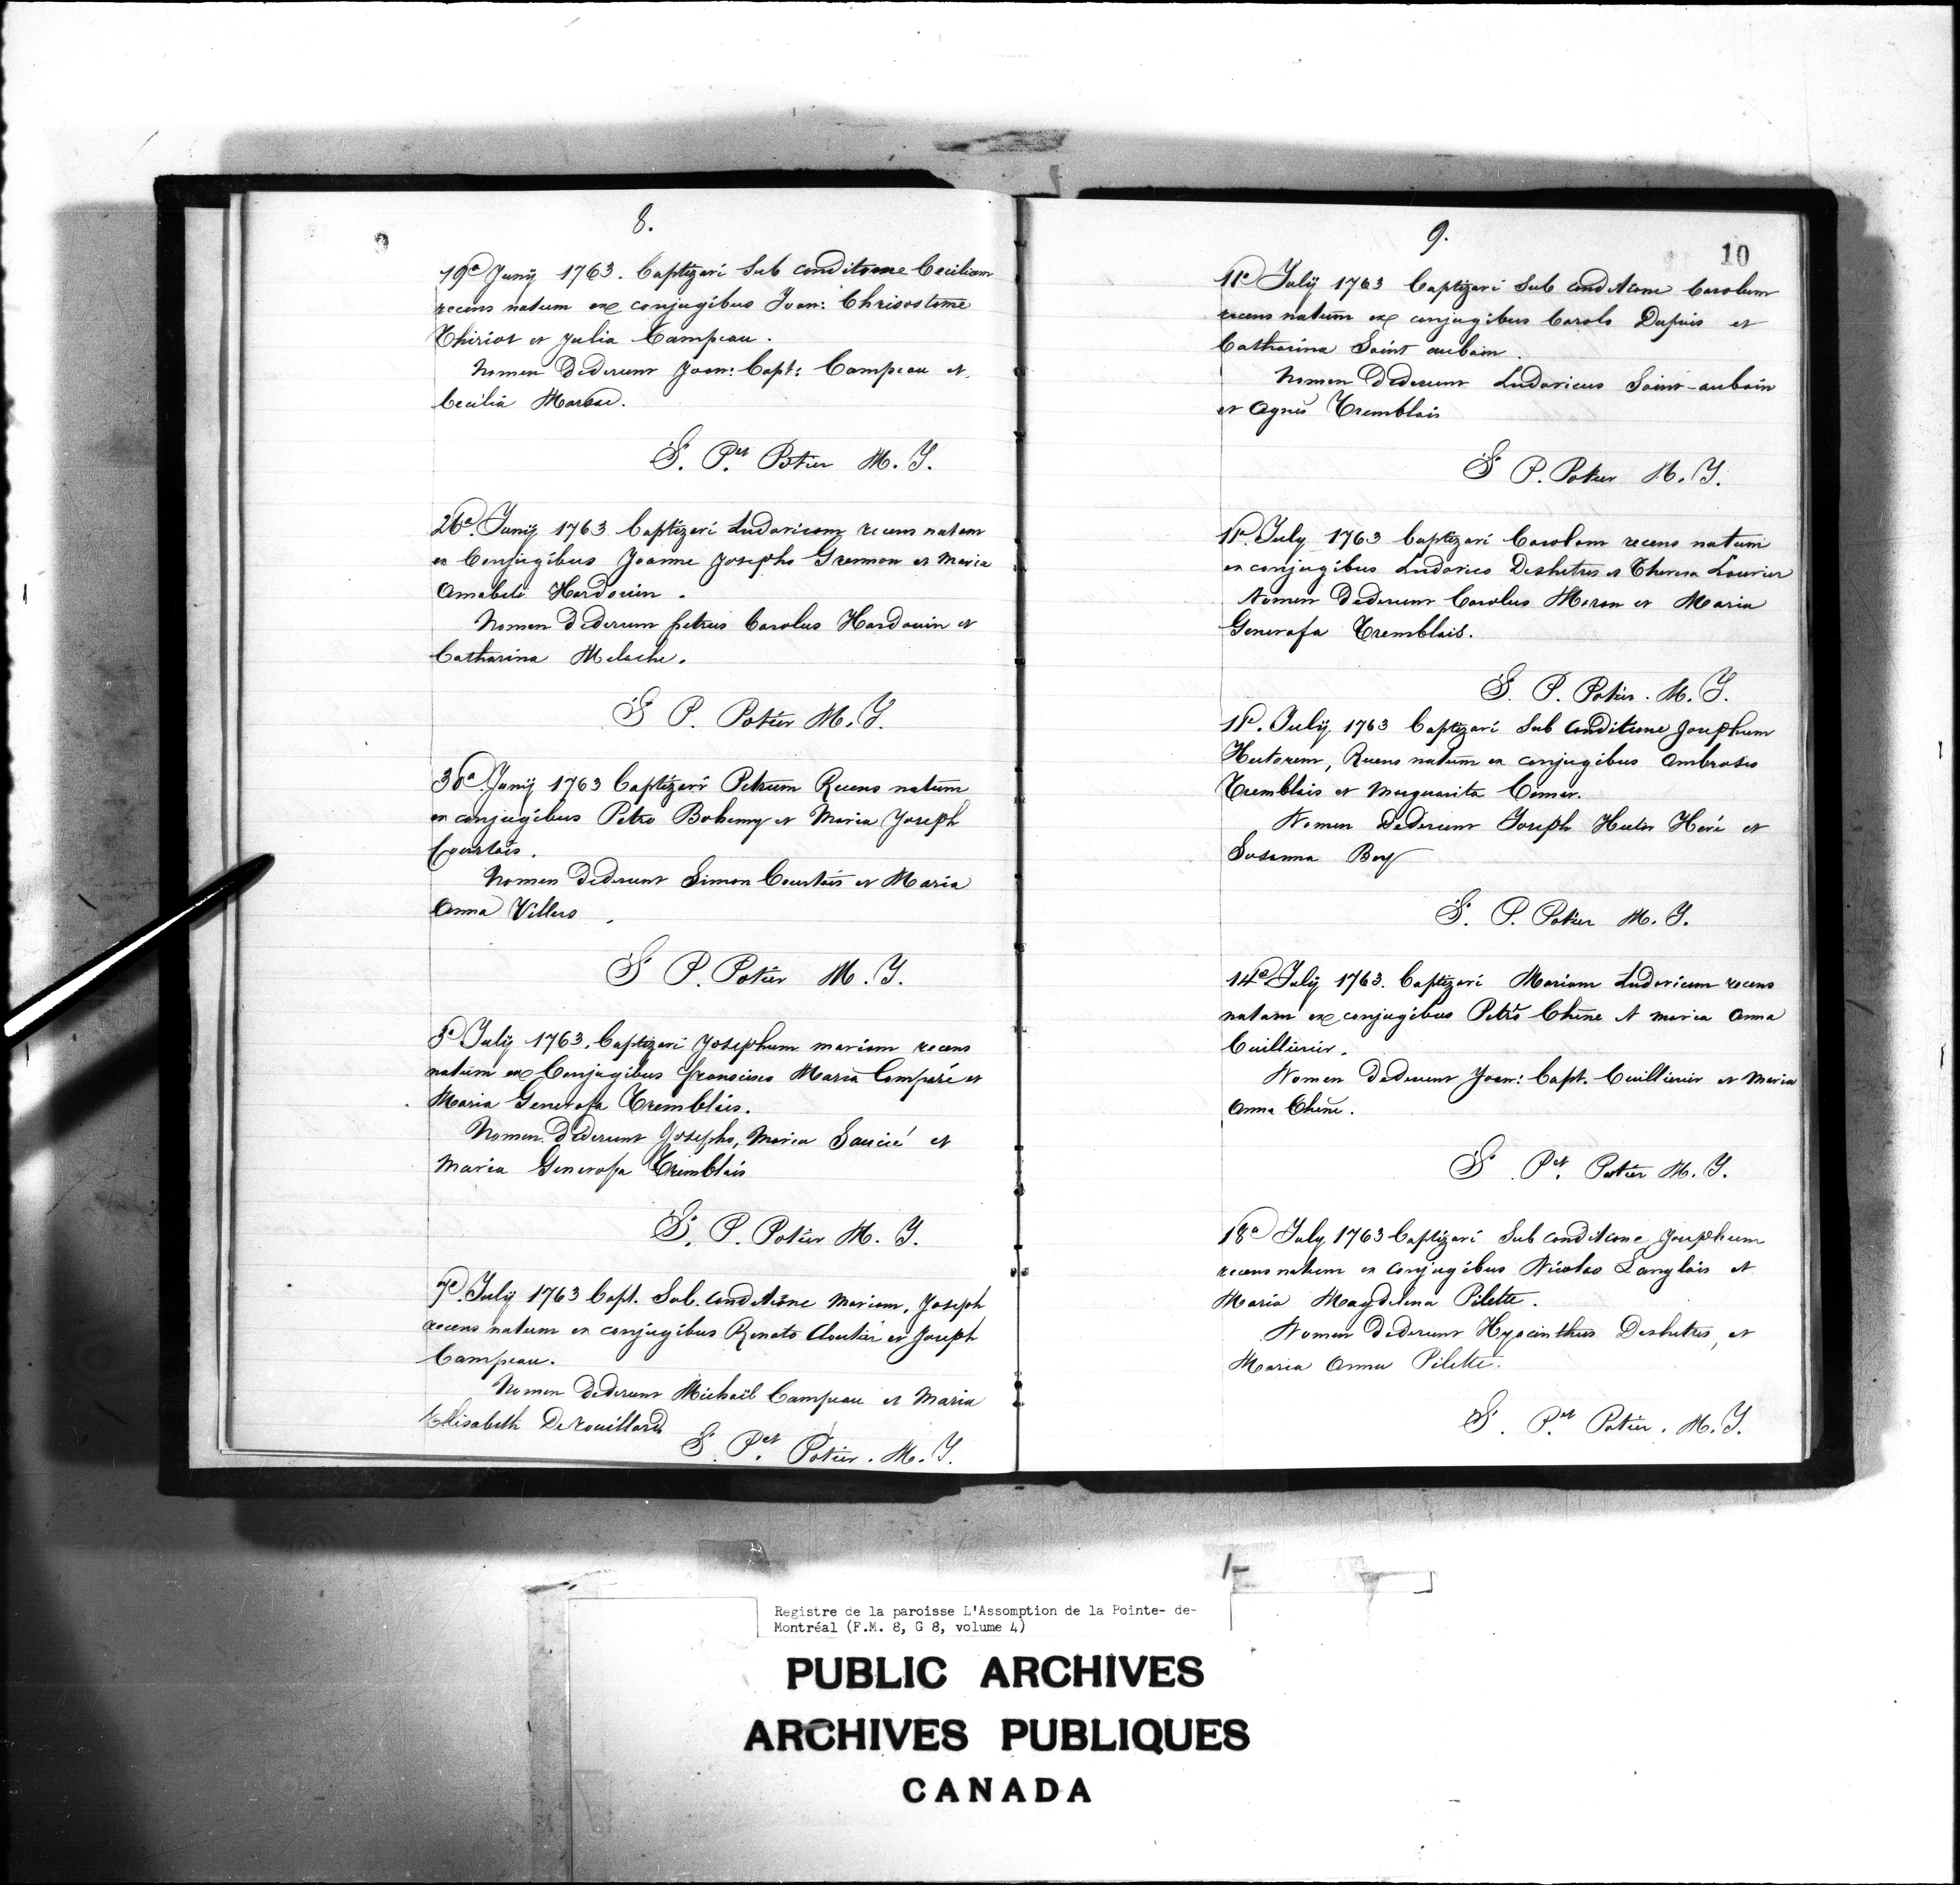 8.
19a Junÿ 1763. baptizavi Sub conditione Ceciliam
recens natum ex conjugibus Joan: Chrisostome
Thiriot et Julia Campeau.
Nomen Dederunt Joan: Bapt: Campeau et
Cecilia Marsac.
S. Pet Potier M. J.
26a. Junÿ 1763 baptizavi Ludovicam recens natam
ex Conjugibus Joanne Josepho Grennon et Maria
Amabili Hardouin.
Nomen Dederunt petrus Carolus Hardouin et
Catharina Meloche.
S P. Potier M. J.
30a. Junÿ 1763 baptizavi Petrum Recens natum
ex conjugibus Petro Bohemy et Maria Joseph
Courtois.
Nomen Dederunt Simon Courtois et Maria
Anna Villers.
S P. Potier M. J.
3a July 1763. baptizavi Josephum mariam recens
natum ex Conjugibus francisco Maria Comparé et
Maria Generosa Tremblais.
Nomen Dederunt Josepho, Maria Saucié et
Maria Generosa Tremblais
S. P. Potier M. J.
7a. July 1763 bapt. Sub. conditione Mariam, Joseph
recens natum ex conjugibus Renato Cloutier et Joseph
Campeau.
Nomen dederunt Michaël Campeau et Maria
Elisabeth De rouillard
S. Pet. Potier. M. J.
9.
10
11a July 1763 baptizavi Sub conditione Carolum
recens natum ex conjugibus Carolo Dupuis et
Catharina Saint aubain.
Nomen Dederunt Ludovicus Saint-aubain
et Agnes Tremblais
S P. Potier M. J.
11a. July 1763 baptizavi Carolam recens natum
ex conjugibus Ludovico Deshetres et Theresa Lourier
Nomen Dederunt Carolus Moran et Maria
Generosa Tremblais.
S. P. Potier. M. J.
11a. July 1763 baptizavi Sub conditione Josephum
Hectorem, Recens natum ex conjugibus Ambrosio
Tremblais et Marguarita
Nomen Dederunt Joseph Hector Heré et
Susanna
S. P. Potier M. J.
14a July 1763. baptizavi Mariam Ludovicam recens
natam ex conjugibus Petro Chêne et maria Anna
Cuillierier.
Nomen Dederunt Joan: Bapt. Cuillierier et Maria
Anna Chêne.
S. Pet. Potier M. J.
18a July 1763 baptizavi Sub conditione Josephum
recens natum ex conjugibus Nicolao Langlois et
Maria Magdelena Pilette.
Nomen Dederunt Hyacinthus Deshetres, et
Maria Anna Pilette.
S. Pet. Potier. M. J.
Registre de la paroisse L'Assomption de la Pointe- de-
Montréal (F.M. 8, G 8, volume 4)
PUBLIC ARCHIVES
ARCHIVES PUBLIQUES
CANADA